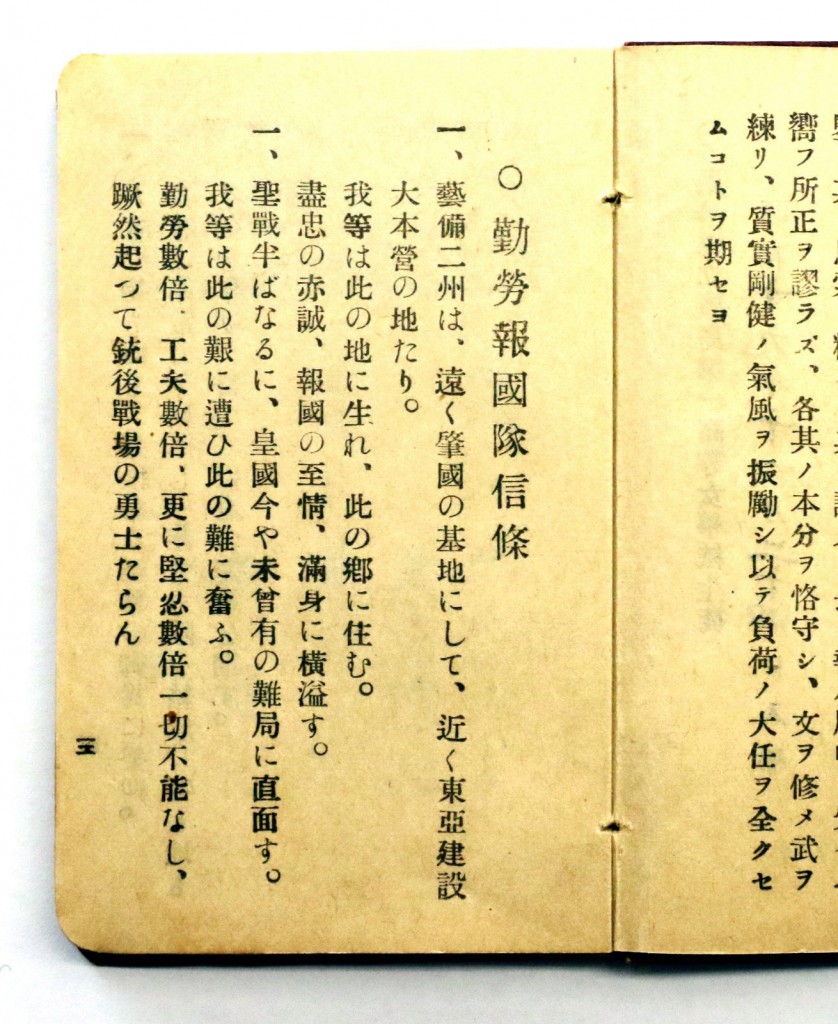 嚮フ所正ヲ謬ラズ、各其ノ本分ヲ恪守シ、文ヲ修メ武ヲ
練リ、質實剛健ノ氣風ヲ振勵シ以テ負荷ノ大任ヲ全クセ
ムコトヲ期セヨ
○ 勤勞報國隊信條
一、藝備二州は、遠く肇國の基地にして、近く東亞建設
大本營の地たり。
我等は此の地に生れ、此の鄕に住む。
盡忠の赤誠、報國の至情、滿身に横溢す。
一、聖戰半ばなるに、皇國今や未曾有の難局に直面す。
我等は此の艱に遭ひ此の難に奮ふ。
勤勞數倍、工夫數倍、更に堅忍數倍一切不能なし、
蹶然起つて銃後戰場の勇士たらん